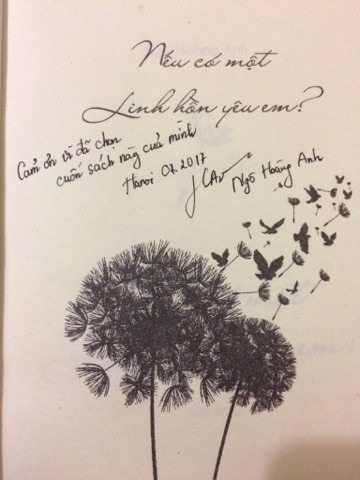 Nếu có một
Linh hồn yêu em?
Cảm ơn vì đã chọn
cuốn sách này của mình
Hanoi 07.2017
Ngô Hoàng Anh